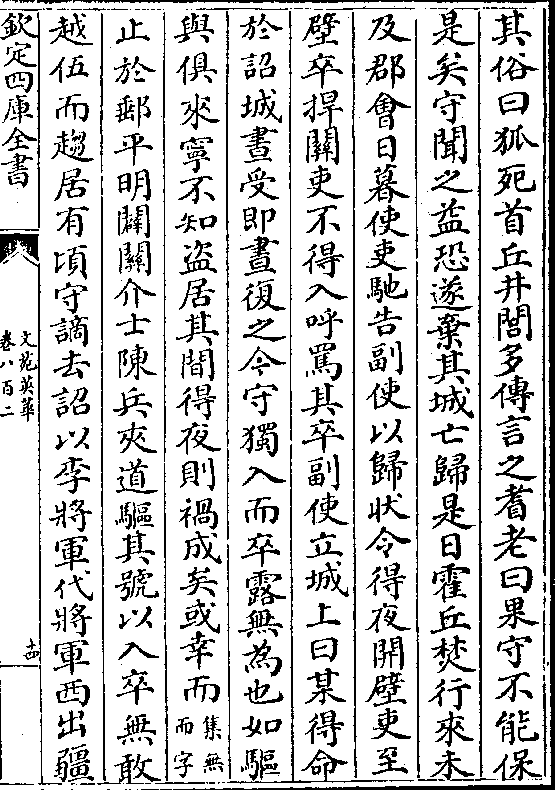 其俗曰狐死首丘井閭多傳言之耆老曰果守不能保
是矣守聞之益恐遂棄其城亡歸是日霍丘焚行來未
及郡會日暮使吏馳告副使以歸狀令得夜開壁吏至
壁卒捍關吏不得入呼罵其卒副使立城上曰某得命
於詔城晝受即晝復之今守獨入而卒露無為也如驅
與俱來寧不知盜居其間得夜則禍成矣或幸而集無而字
止於郵平明闢關介士陳兵夾道驅其號以入卒無敢
越伍而趨居有頃守謫去詔以李將軍代將軍西出疆
欽定四庫全書
文苑英華
卷八百二
十四